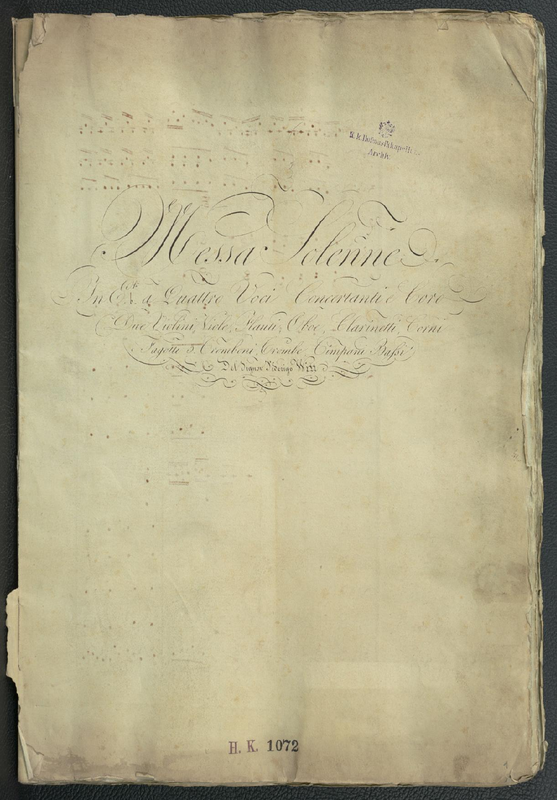 K. k. Hofmusikkapelle
Archiv
Messa Solenne
In a Quattro Voci Concertanti e Coro
Due Violini, Viole, Flauti, Oboe, Clarinetti, Corni
Fagotti 3 Tromboni Trombe Timpani Bassi
Del Signor Witt
H. K. 1072